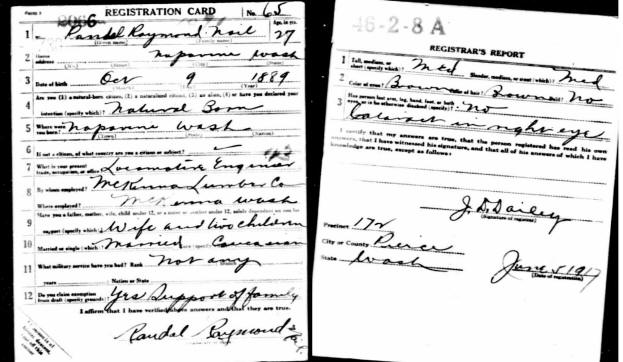 REGISTRATION CARD No. 65
Form 1
2086
Age, in yrs.
1 Randel Raymond Nail 27
(Given name) (Family name)
2 Home address Napavine Wash
(No.) (Street) (City) (State)
3 Date of birth Oct 9 1889
(Month) (Day) (Year)
4 Are you (1) a natural-born citizen, (2) a naturalized citizen, (3) an alien, (4) or have you declared your
intention (specify which)? Natural Born
5 Where were you born? Napavine Wash
(Town) (State) (Nation)
6 If not a citizen, of what country are you a citizen or subject?
7 What is your present trade, occupation, or office? Locomotive Engineer
8 By whom employed? McKenna Lumber Co
Where employed? McKenna Wash
9 Have you a father, mother, wife, child under 12, or a sister or brother under 12, solely dependent on you for
support (specify which)? Wife and two Children
10 Married or single (which)? Married Race (specify which)? Caucasian
11 What military service have you had? Rank Not any
years Nation or State
12 Do you claim exemption from draft (specify grounds)? Yes Support of family
I affirm that I have verified above answers and that they are true.
Randel Raymond
46-2-8 A
REGISTRAR'S REPORT
1 Tall, medium, or short (specify which)? Med Slender, medium, or stout (which)? Med
2 Color of eyes? Brown Color of hair? Brown Bald? No
3 Has person lost arm, leg, hand, foot, or both eyes, or is he otherwise disabled (specify)? No
Cataract in right eye
I certify that my answers are true, that the person registered has read his own
answers, that I have witnessed his signature, and that all of his answers of which I have
knowledge are true, except as follows:
J. D. Dailey
(Signature of registrar)
Precinct 172
City or County Pierce
State Wash
June 5 1917
(Date of registration)